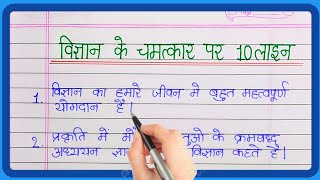 विज्ञान के चमत्कार पर 10 लाइन
1. विज्ञान का हमारे जीवन मे बहुत महत्वपूर्ण
योगदान हैं।
2. प्रकृति में नुओ के क्रमबद्ध
अध्ययन विज्ञान कहते हैं।